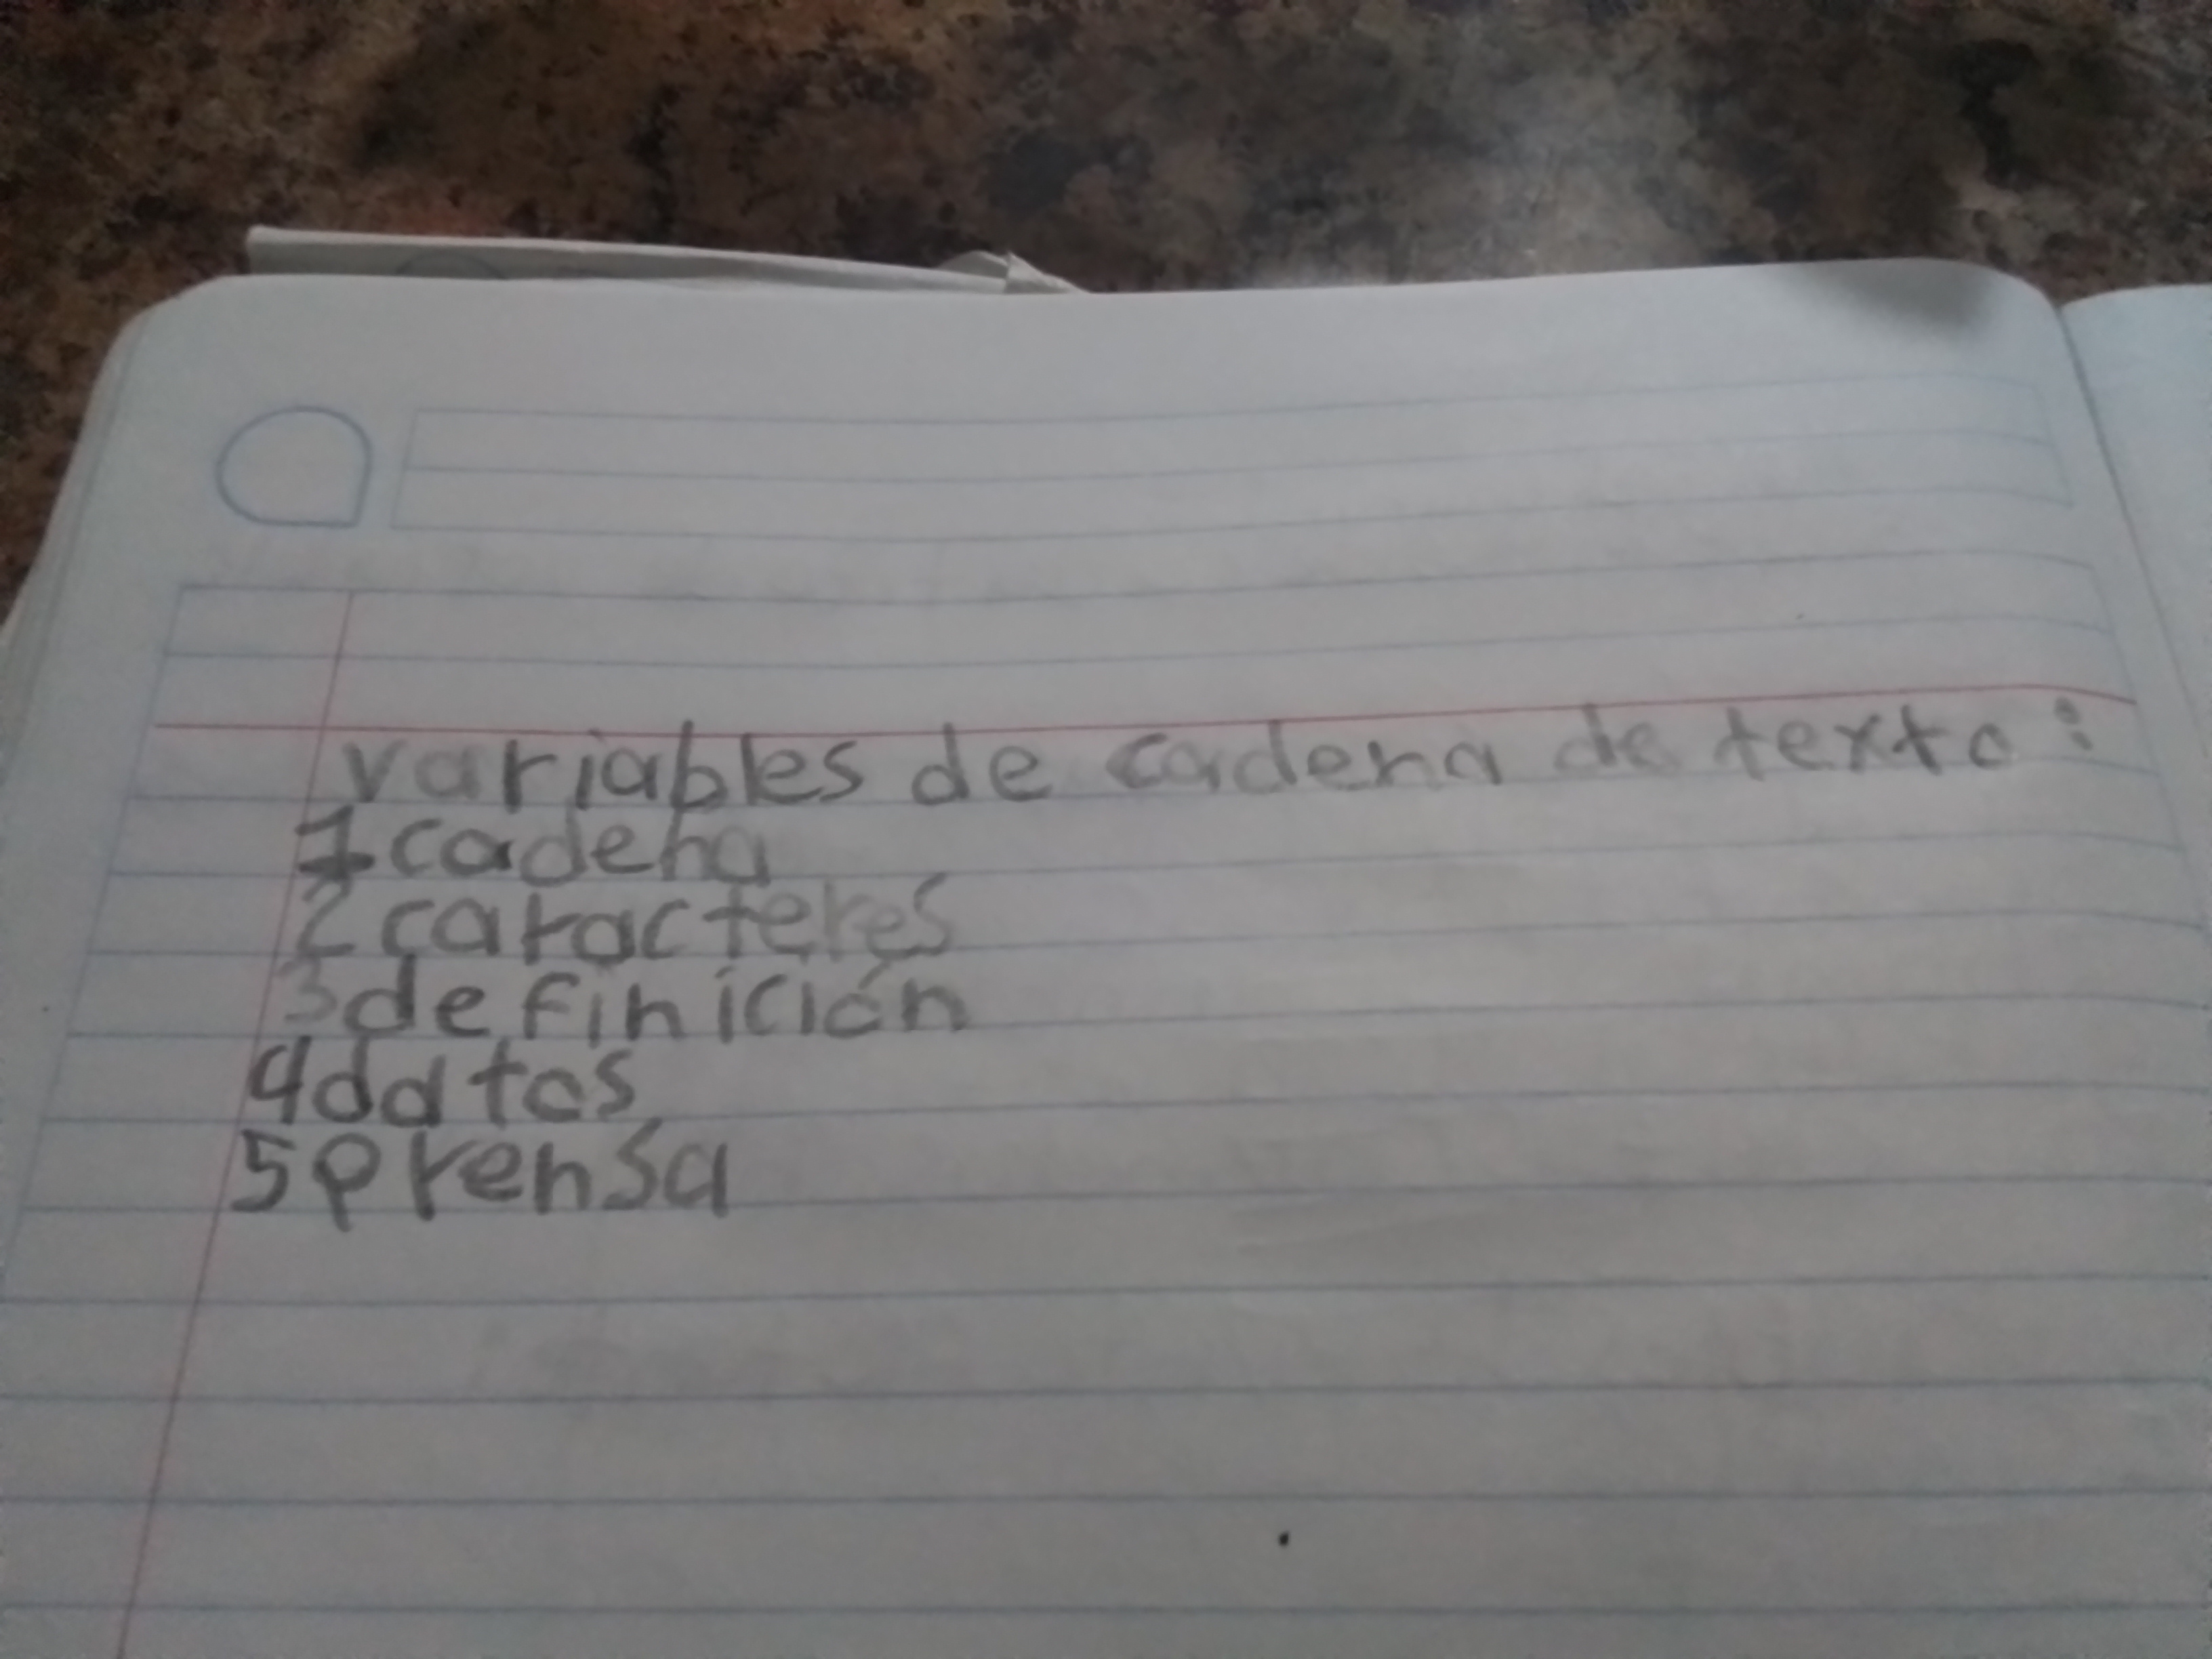 variables de cadena de texto:
1 cadena
2 caracteres
3 definición
4 datos
5 prensa